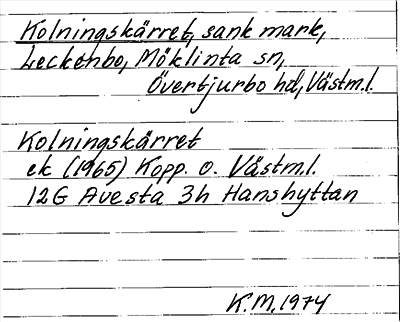 Kolningskärret, sank mark,
Leckenbo, Möklinta sn,
Övertjurbo hd, Västm.l.
Kolningskärret
ek (1965) Kopp. o. Västm.l.
12G Avesta 3h Hanshyttan
K.M. 1974